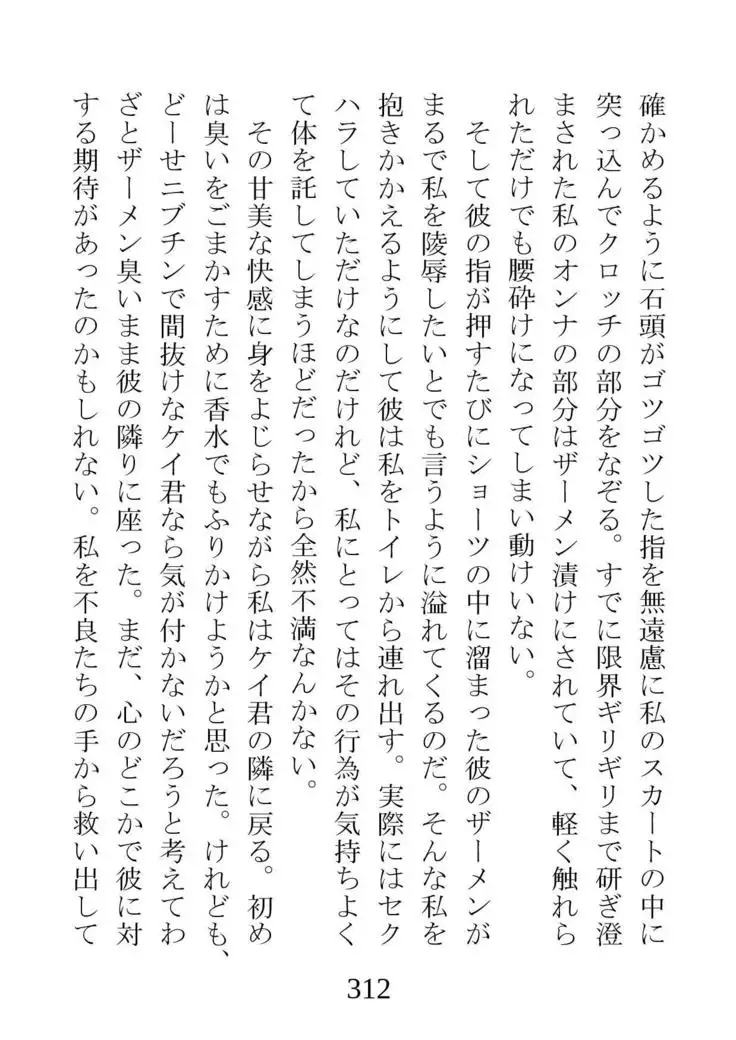 確かめるように石頭がゴツゴツした指を無遠慮に私のスカートの中に
突っ込んでクロッチの部分をなぞる。すでに限界ギリギリまで研ぎ澄
まされた私のオンナの部分はザーメン漬けにされていて、軽く触れら
れただけでも腰砕けになってしまい動けいない。
そして彼の指が押すたびにショーツの中に溜まった彼のザーメンが
まるで私を陵辱したいとでも言うように溢れてくるのだ。そんな私を
抱きかかえるようにして彼は私をトイレから連れ出す。実際にはセク
ハラしていただけなのだけれど、私にとってはその行為が気持ちよく
て体を託してしまうほどだったから全然不満なんかない。
その甘美な快感に身をよじらせながら私はケイ君の隣に戻る。初め
は臭いをごまかすために香水でもふりかけようかと思った。けれども、
どーせニブチンで間抜けなケイ君なら気が付かないだろうと考えてわ
ざとザーメン臭いまま彼の隣りに座った。まだ、心のどこかで彼に対
する期待があったのかもしれない。私を不良たちの手から救い出して
312